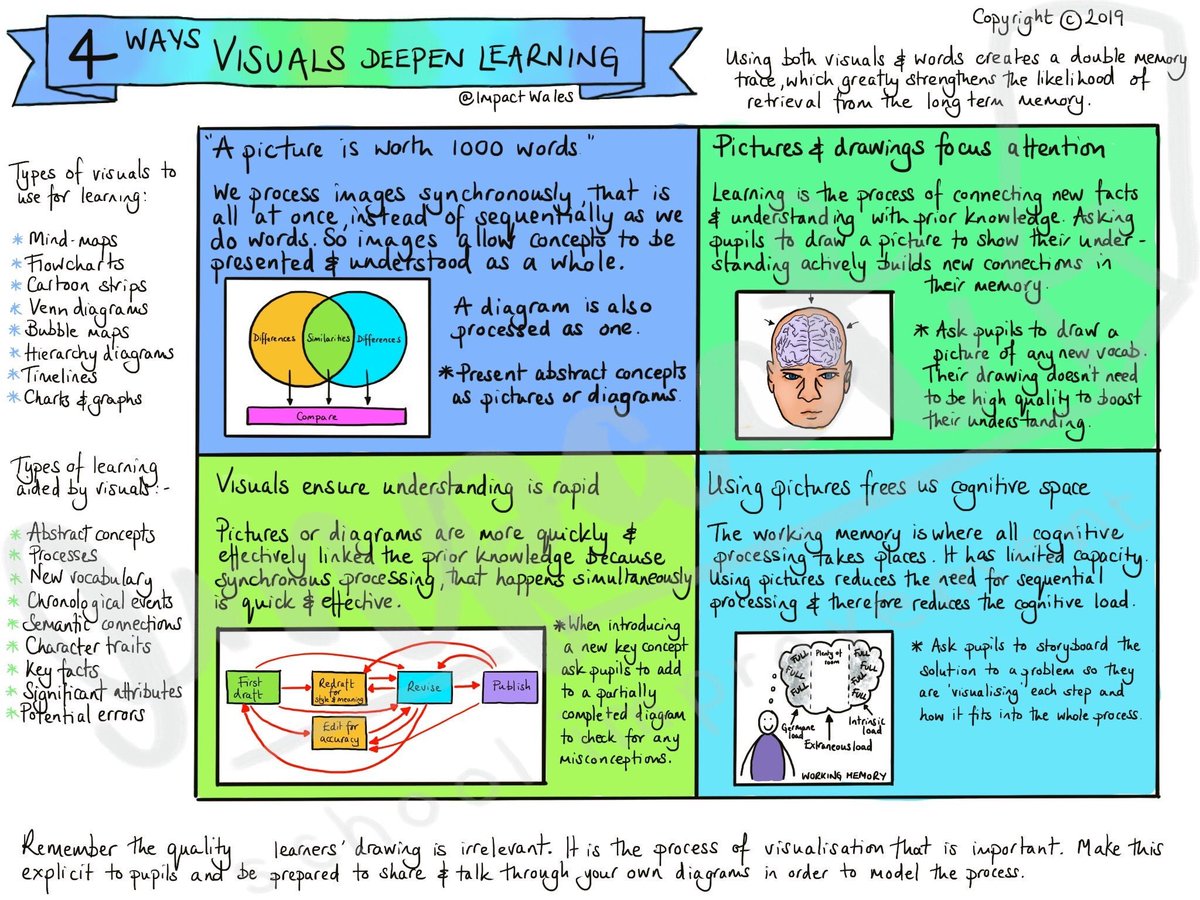 4 WAYS VISUALS DEEPEN LEARNING
@ImpactWales
Copyright © 2019
Using both visuals & words creates a double memory
trace, which greatly strengthens the likelihood of
retrieval from the long term memory.
Types of visuals to
use for learning:
* Mind-maps
* Flowcharts
* Cartoon strips
* Venn diagrams
* Bubble maps
* Hierarchy diagrams
* Timelines
* Charts & graphs
Types of learning
aided by visuals:-
* Abstract concepts
* Processes
* New vocabulary
* Chronological events
* Semantic connections
* Character traits
* Key facts
* Significant attributes
* Potential errors
"A picture is worth 1000 words"
We process images synchronously, that is
all at once, instead of sequentially as we
do words. So, images allow concepts to be
presented & understood as a whole.
Differences
Similarities
Differences
Compare
A diagram is also
processed as one.
* Present abstract concepts
as pictures or diagrams.
Pictures & drawings focus attention
Learning is the process of connecting new facts
& understanding with prior knowledge. Asking
pupils to draw a picture to show their under-
standing actively builds new connections in
their memory.
* Ask pupils to draw a
picture of any new vocab.
Their drawing doesn't need
to be high quality to boost
their understanding.
Visuals ensure understanding is rapid
Pictures or diagrams are more quickly &
effectively linked the prior knowledge because
synchronous processing, that happens simultaneously
is quick & effective.
First
draft
Redraft for
style & meaning
Revise
Publish
Edit for
accuracy
* When introducing
a new key concept
ask pupils to add
to a partially
completed diagram
to check for any
misconceptions.
Using pictures frees us cognitive space
The working memory is where all cognitive
processing takes places. It has limited capacity.
Using pictures reduces the need for sequential
processing & therefore reduces the cognitive load.
FULL
FULL
FULL
FULL
Plenty of
room
FULL
FULL
FULL
Germane
load
Extraneous load
Intrinsic
load
WORKING MEMORY
* Ask pupils to storyboard the
solution to a problem so they
are 'visualising' each step and
how it fits into the whole process.
Remember the quality learners' drawing is irrelevant. It is the process of visualisation that is important. Make this
explicit to pupils and be prepared to share & talk through your own diagrams in order to model the process.